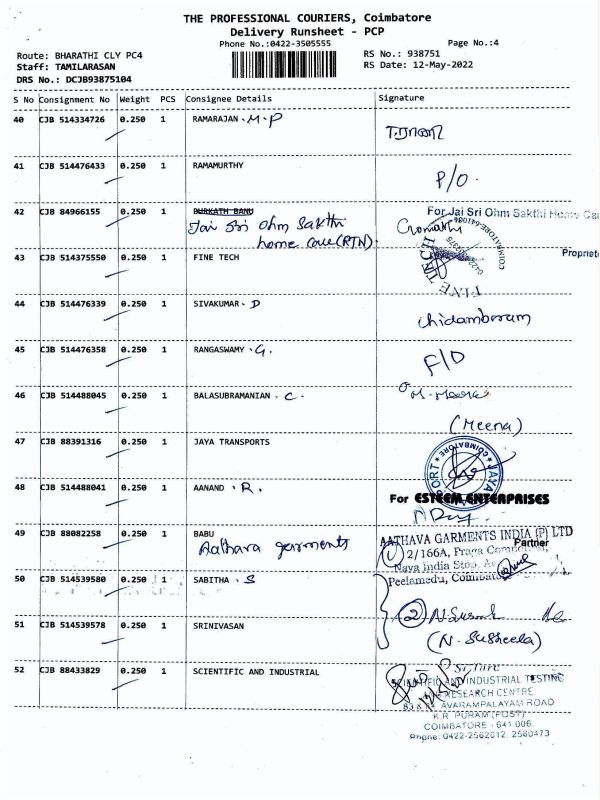 THE PROFESSIONAL COURIERS, Coimbatore
Delivery Runsheet - PCP
Phone No.:0422-3505555
Page No.:4
Route: BHARATHI CLY PC4
RS No.: 938751
Staff: TAMILARASAN
RS Date: 12-May-2022
DRS No.: DCJB93875104
S No Consignment No Weight PCS Consignee Details Signature
40 CJB 514334726 0.250 1 RAMARAJAN . M.P
41 CJB 514476433 0.250 1 RAMAMURTHY P/O.
42 CJB 84966155 0.250 1 BURKATH BANU For Jai Sri Ohm Sakthi Home
Jai Sri Ohm Sakthi
home care(RTN)
43 CJB 514375550 0.250 1 FINE TECH
FINE TECH
44 CJB 514476339 0.250 1 SIVAKUMAR . D
Chidambaram
45 CJB 514476358 0.250 1 RANGASWAMY . G. F/O
46 CJB 514488045 0.250 1 BALASUBRAMANIAN . C. M. Meena
(Meena)
47 CJB 88391316 0.250 1 JAYA TRANSPORTS
48 CJB 514488041 0.250 1 AANAND . R. For ESTEEM ENTERPRISES
49 CJB 88082258 0.250 1 BABU AATHAVA GARMENTS INDIA (P) LTD
Aathava garments
Partner
1 2/166A,
Nava India Stop,
Peelamedu, Coimbatore
50 CJB 514539580 0.250 1 SABITHA . S
2
51 CJB 514539578 0.250 1 SRINIVASAN
(N. Susheela)
52 CJB 88433829 0.250 1 SCIENTIFIC AND INDUSTRIAL
SCIENTIFIC AND INDUSTRIAL TESTING
RESEARCH CENTRE
AVARAMPALAYAM ROAD
K.R PURAM (POST)
COIMBATORE - 641 006.
Phone: 0422-2562612, 2560473